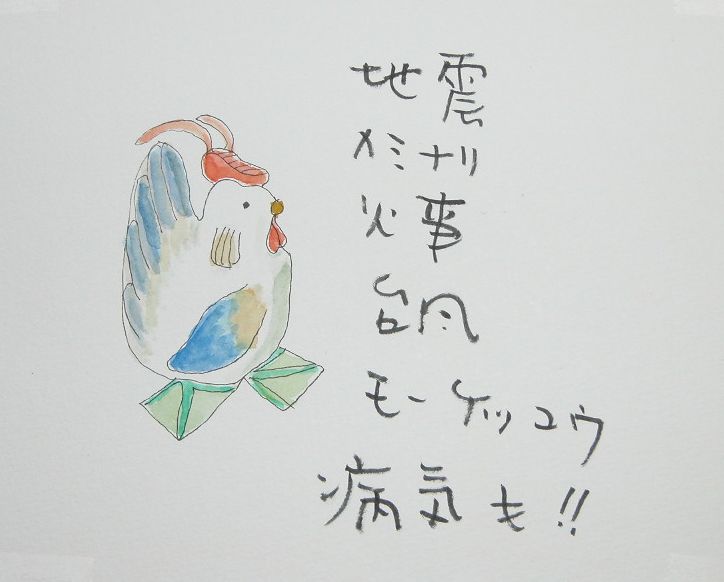 地震
カミナリ
火事
台風
モーケッコウ
病気も!!